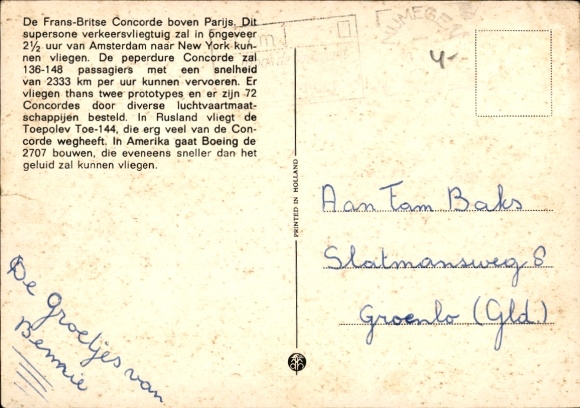 De Frans-Britse Concorde boven Parijs. Dit
supersone verkeersvliegtuig zal in ongeveer
2½ uur van Amsterdam naar New York kun-
nen vliegen. De peperdure Concorde zal
136-148 passagiers met een snelheid
van 2333 km per uur kunnen vervoeren. Er
vliegen thans twee prototypes en er zijn 72
Concordes door diverse luchtvaartmaat-
schappijen besteld. In Rusland vliegt de
Toepolev Toe-144, die erg veel van de Con-
corde wegheeft. In Amerika gaat Boeing de
2707 bouwen, die eveneens sneller dan het
geluid zal kunnen vliegen.
De groetjes van
Bennie
PRINTED IN HOLLAND
NIJMEGEN
4-
Aan Fam Baks
Slatmansweg 8
Groenlo (Gld.)